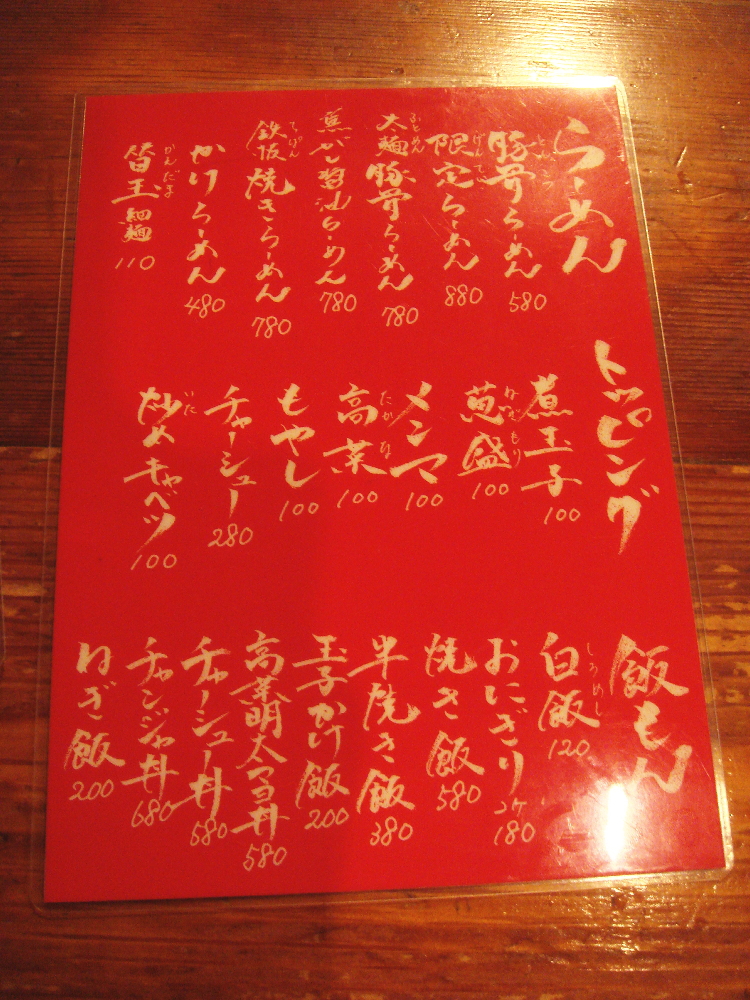 らーめん
豚骨らーめん 580
とんこつ
限定らーめん 880
げんてい
太麺豚骨らーめん 780
ふとめん
焦がし醤油らーめん 780
鉄板焼きらーめん 780
てっぱん
かけらーめん 480
替玉 細麺 110
かんだま
トッピング
煮玉子 100
葱盛 100
ねぎもり
メンマ 100
高菜 100
たかな
もやし 100
チャーシュー 280
炒メキャベツ 100
いた
飯もん
白飯 120
しろめし
おにぎり 2ケ 180
焼き飯 580
半焼き飯 380
玉子かけ飯 200
高菜明太マヨ丼 580
チャーシュー丼 580
チャンジャ丼 680
ねぎ飯 200